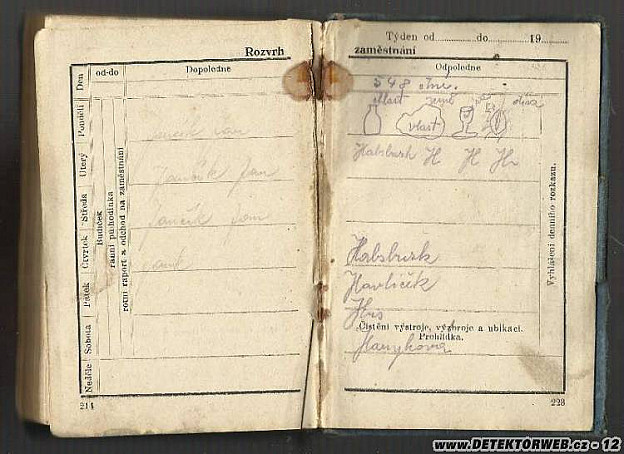 Rozvrh
Den
od-do
Dopoledne
Pondělí
Úterý
Středa
Čtvrtek
Pátek
Sobota
Neděle
Budíček
ranní půlhodinka
rotní raport a odchod na zaměstnání
Jančík Jan
Jančík Jan
214
Týden od do 19
zaměstnání
Odpoledne
548 dní.
vlast
Habsburk H H H
Habsburk
Havlíček
Hus
Čistění výstroje, výzbroje a ubikací.
Prohlídka.
Hanykova
Vyhlášení denního rozkazu.
223
www.DETEKTORWEB.cz - 12